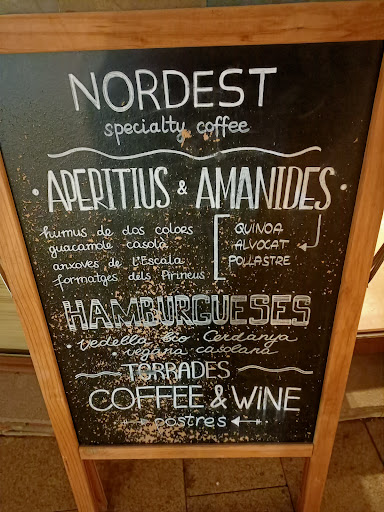 NORDEST
specialty coffee
APERITIUS & AMANIDES
humus de dos colors
guacamole casolà
anxoves de l'Escala
formatges dels Pirineus
QUINOA
ALVOCAT
POLLASTRE
HAMBURGUESES
· vedella eco Cerdanya
· vegana casolana
TORRADES
COFFEE & WINE
postres